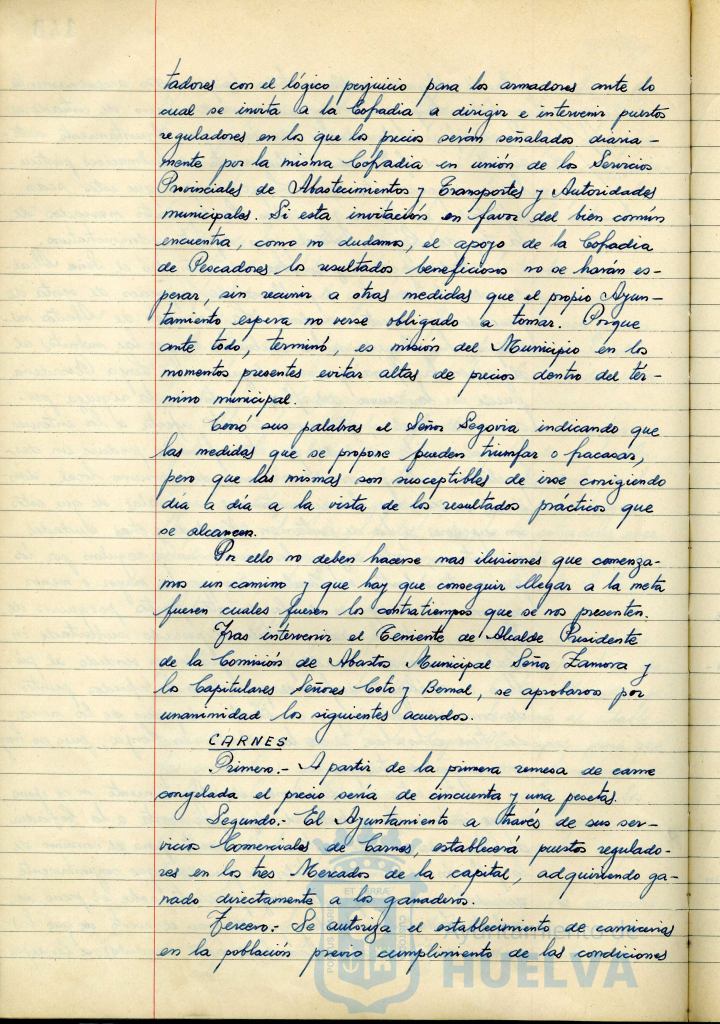 tadores con el lógico perjuicio para los armadores ante lo
cual se invita a la Cofradia a dirigir e intervenir puestos
reguladores en los que los precios serán señalados diaria-
mente por la misma Cofradia en unión de los Servicios
Provinciales de Abastecimientos y Transportes y Autoridades
municipales. Si esta invitación en favor del bien común
encuentra, como no dudamos, el apoyo de la Cofradia
de Pescadores los resultados beneficiosos no se harán es-
perar, sin recurrir a otras medidas que el propio Ayun-
tamiento espera no verse obligado a tomar. Porque
ante todo, terminó, es misión del Municipio en los
momentos presentes evitar altas de precios dentro del tér-
mino municipal.
Cerró sus palabras el Señor Segovia indicando que
las medidas que se propone pueden triunfar o fracasar,
pero que las mismas son susceptibles de irse corrigiendo
día a día a la vista de los resultados prácticos que
se alcancen.
Por ello no deben hacerse mas ilusiones que comenza-
mos un camino y que hay que conseguir llegar a la meta
fueren cuales fueren los contratiempos que se nos presenten.
Tras intervenir el Teniente de Alcalde Presidente
de la Comisión de Abastos Municipal Señor Zamora y
los Capitulares Señores Coto y Bernal, se aprobaron por
unanimidad los siguientes acuerdos.
CARNES
Primero.- A partir de la primera remesa de carne
congelada el precio sería de cincuenta y una pesetas.
Segundo.- El Ayuntamiento a través de sus ser-
vicios Comerciales de Carnes, establecerá puestos regulado-
res en los tres Mercados de la capital, adquiriendo ga-
nado directamente a los ganaderos.
Tercero.- Se autoriza el establecimiento de carnicerias
en la población previo cumplimiento de las condiciones
Ayuntamiento
HUELVA